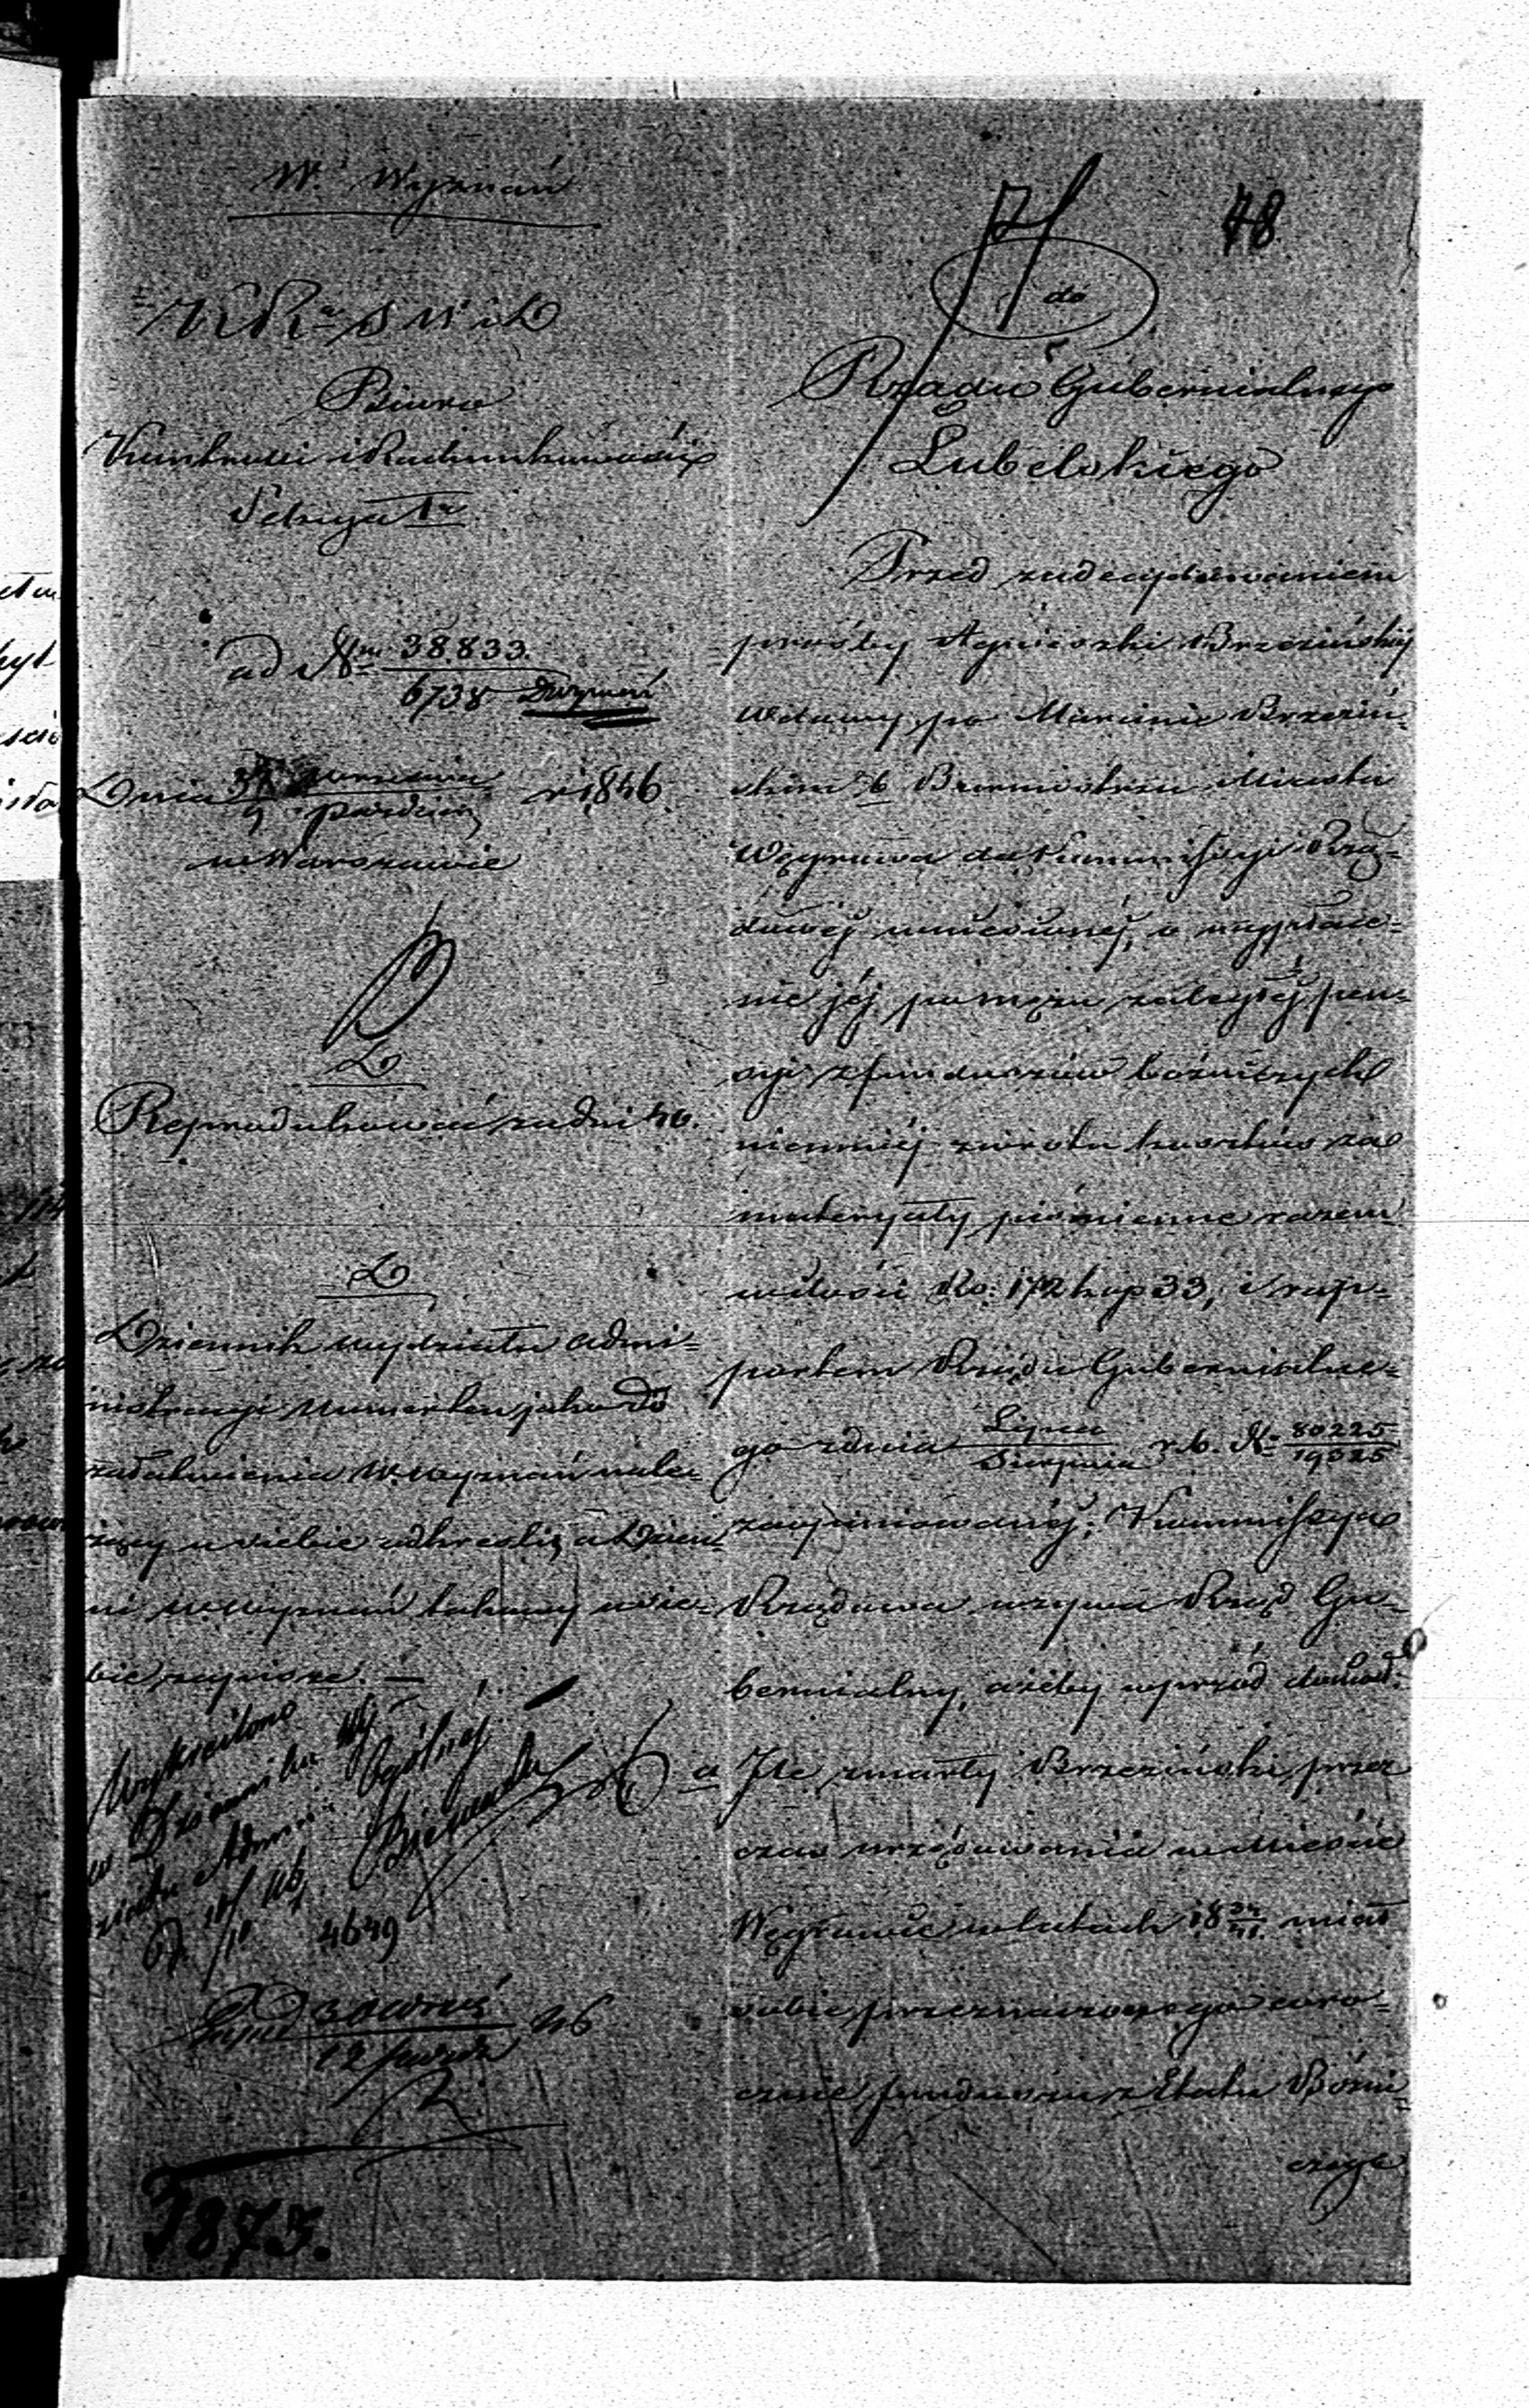 W. Wyznań
78
KRSWiD
Biuro
Kontroli i Rachunkowości
Sekcya 1a
ad Nrm 38.833.
6738 Dwyznań
Dnia Września
9 Paździer r 1846.
w Warszawie
D
Reprodukować za dni 40.
D
Dziennik wydziału admi=
nistracyi numer ten jako do
załatwienia W. Wyznań nale=
żący u siebie wykreśli, a Dzien=
ni W. Wyznań takowy u sie=
bie zapisze. —
Wykreślono
w Dzienniku Wy=
działu Admin: Ogólnéj
4649
30 Wrześ
12 Paźdz 46
7873.
do
Rządu Gubernialnego
Lubelskiego
Przed zadecydowaniem
prośby Agnieszki Brzezińskiéj
Wdowy po Marcinie Brzeziń=
skim b Burmistrzu Miasta
Węgrowa do Kommissyi Rzą=
dowéj wniesionéj, o wypłace=
nie jéj po mężu zaległéj pen=
syi z funduszów bożniczych
niemniéj zwrotu kosztów za
materyały piśmienne razem
w ilości Rs: 172 kop 33, i rap=
portem Rządu Gubernialne=
go z dnia Lipca
Sierpnia r. b. N 80225
19325
zaopiniowanéj; Kommissya
Rządowa wzywa Rząd Gu=
bernialny, ażeby wprzód
a Ile zmarły Brzeziński przez
czas urzędowania w Mieście
Węgrowie w latach 18 miał
sobie przeznaczonego coro=
cznie funduszu z Etatu Bóżni=
czego